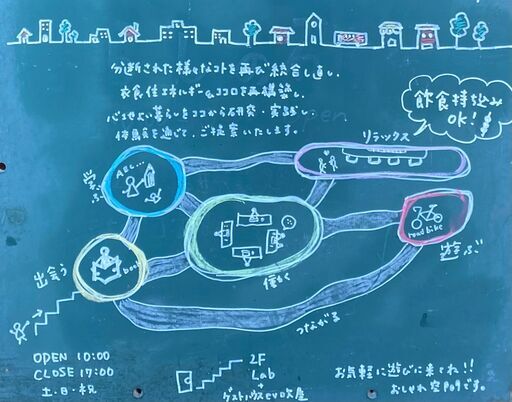 分断された様々なコトを再び統合し直し、
衣食住エネルギー&ココロを再構築し、
心地よい暮らしをココから研究・実践し、
体験を通じて、ご提案いたします。
飲食持ち込み
OK!
リラックス
学ぶ
ABC...
出会う
book
働く
road bike
遊ぶ
つながる
OPEN 10:00
CLOSE 17:00
土・日・祝
2F
Lab
+
ゲストハウスevo吹屋
お気軽に遊びに来てね!!
おしゃれ空間です。